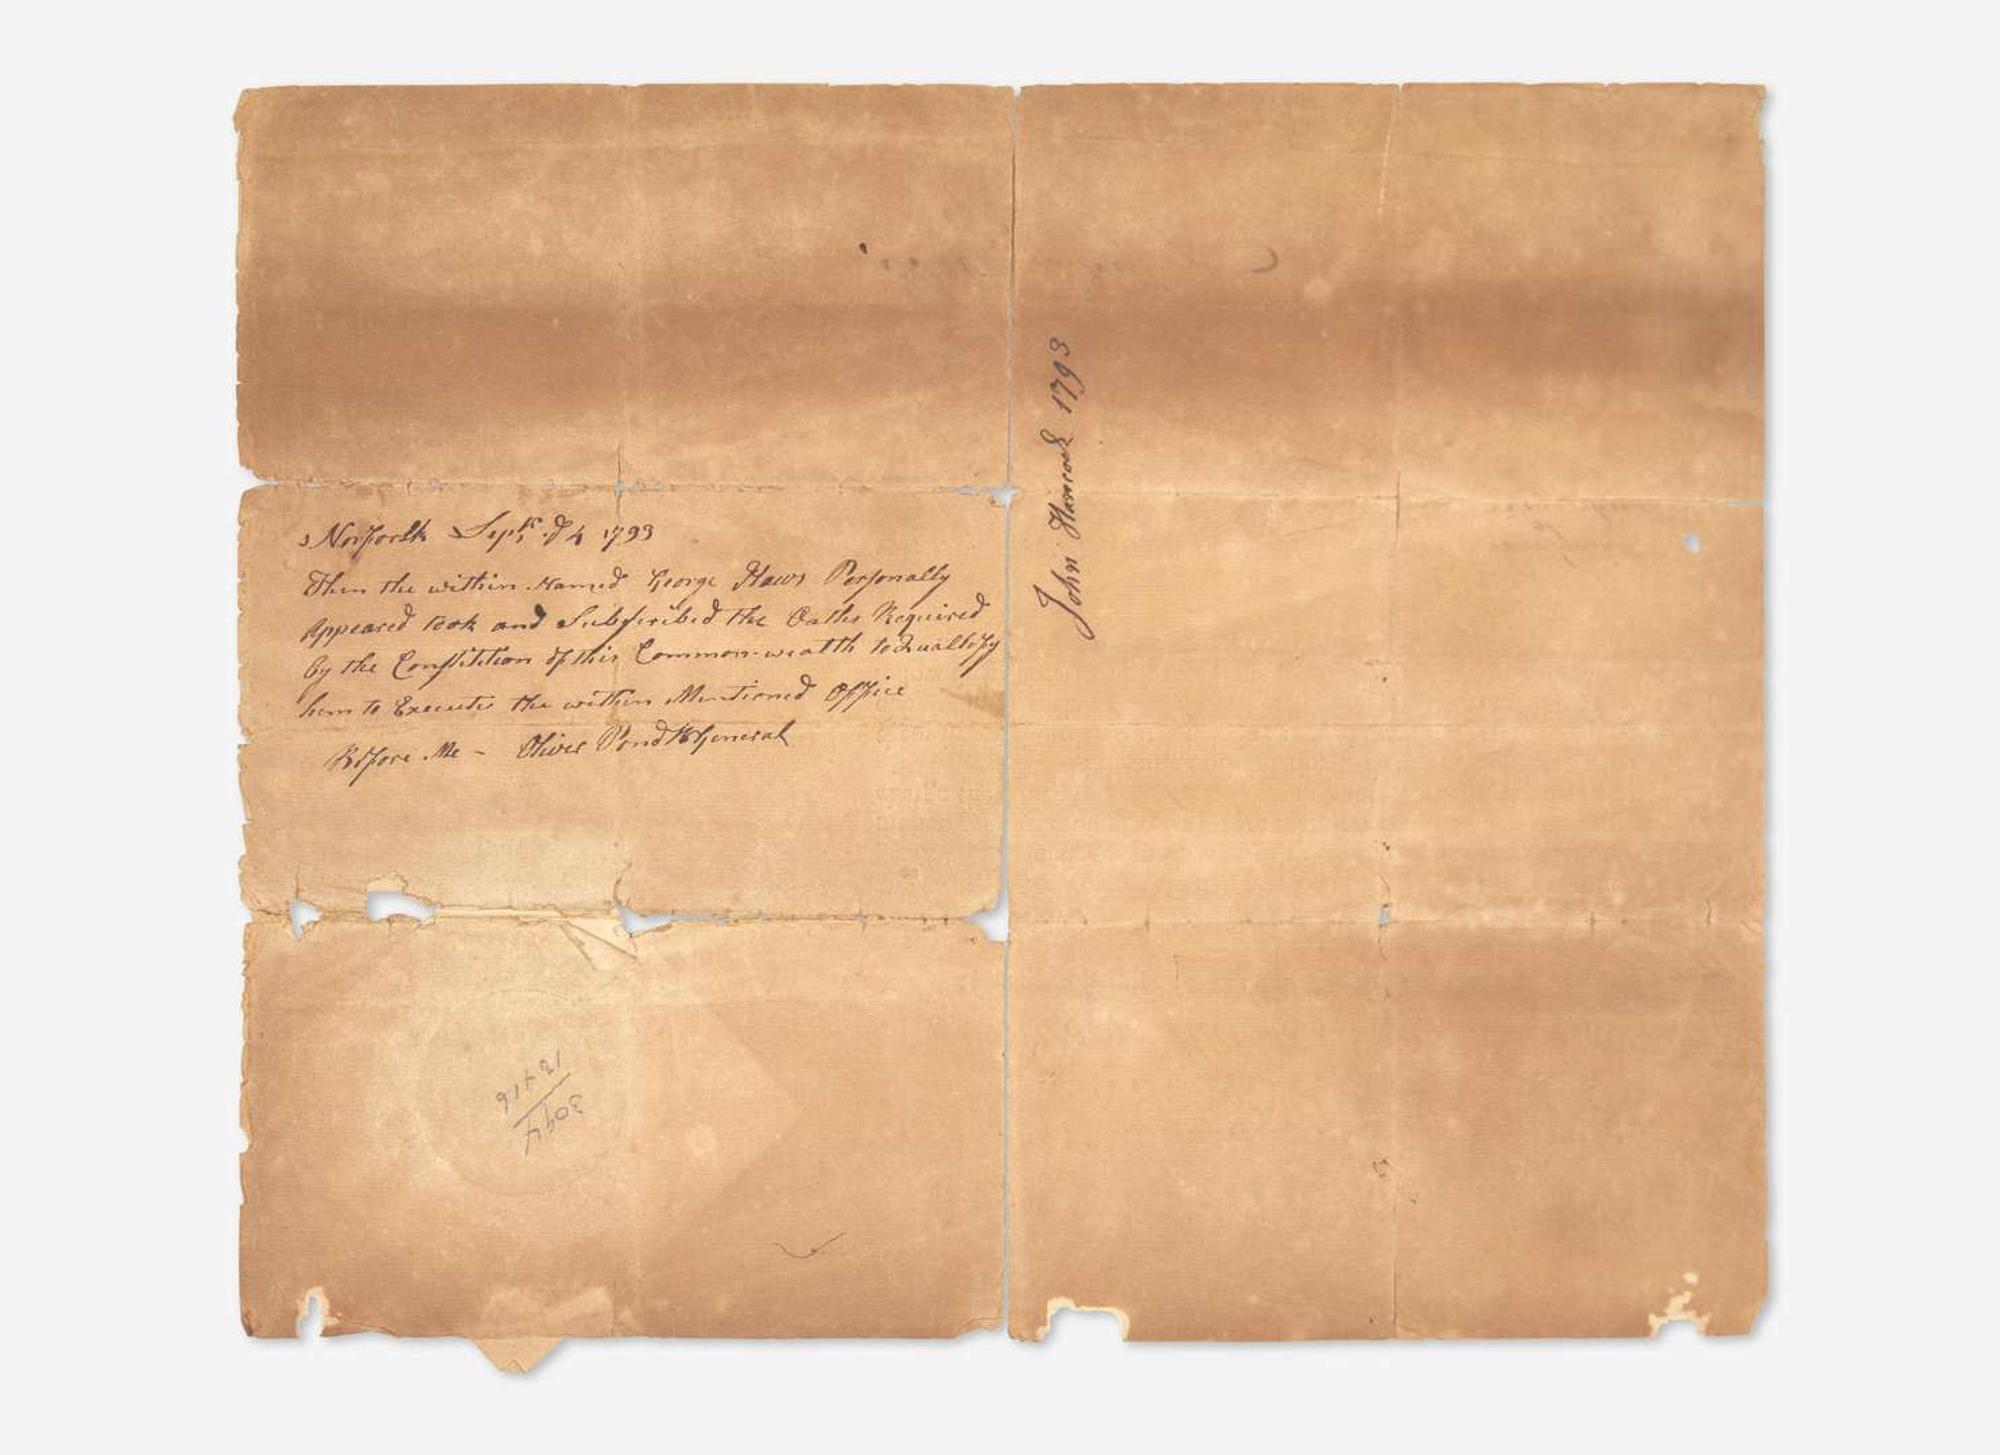 Norfolk Sept. 4 1793
Then the within Named George Haws Personally
Appeared took and Subscribed the Oaths Required
by the Constitition of this Common-wealth to Qualefy
him to Execute the within Mentioned Office
Before Me - Oliver Pond B General
John Hancock 1793
12416
3094